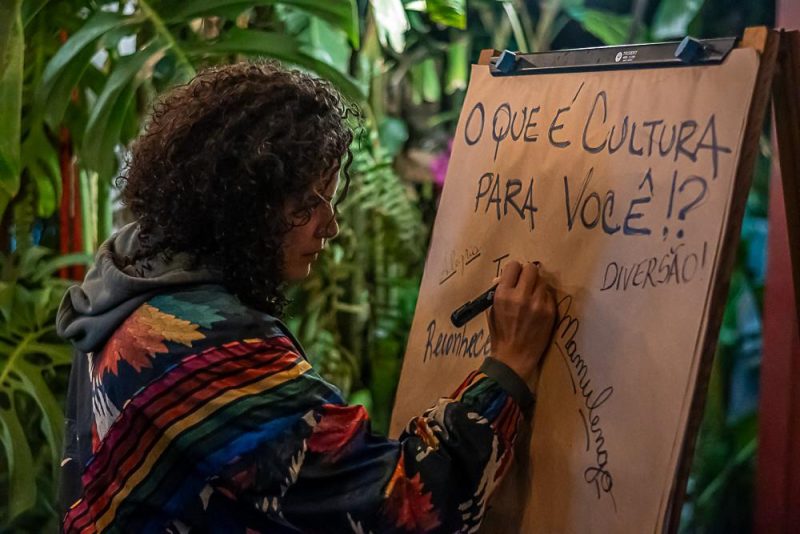 O QUE É CULTURA
PARA VOCÊ!?
Alegria
DIVERSÃO!
T
Reconhece
Mamulengo